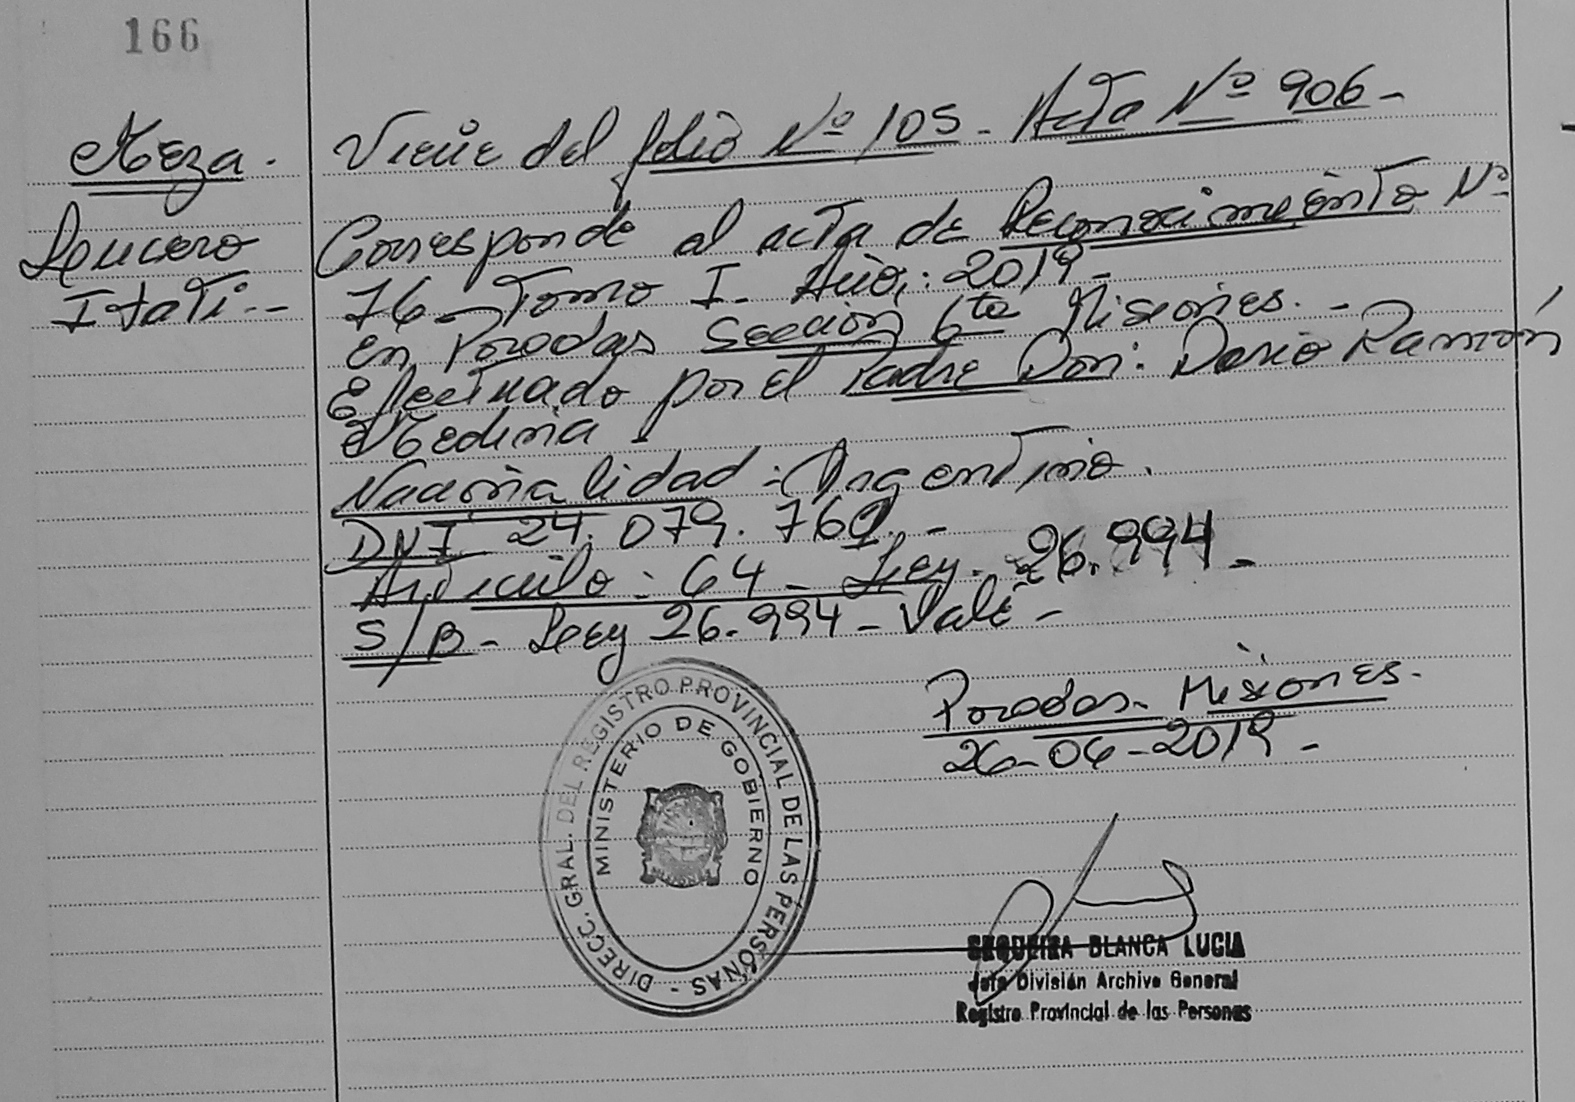 166
Meza.
Lucero
Itatí.--
Viene del folio Nº 105 - Acta Nº 906-
Corresponde al acta de Reconocimiento Nº
76- Tomo I- Año: 2019-
en Posadas Sección 6ta Misiones.-
Efectuado por el Padre Don: Dario Ramón
Medina
Nacionalidad: Argentino.
DNI 24.079.769.-
Artículo: 64- Ley- 26.994-
S/B- Ley 26.994- Vale-
Posadas- Misiones.
26-06-2019-
DIRECC. GRAL. DEL REGISTRO PROVINCIAL DE LAS PERSONAS -
MINISTERIO DE GOBIERNO
SEQUEIRA BLANCA LUCIA
Jefa División Archivo General
Registro Provincial de las Personas